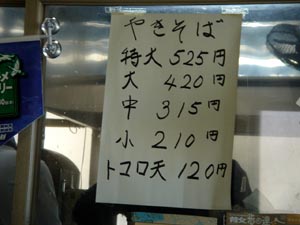 やきそば
特大 525円
大 420円
中 315円
小 210円
トコロ天 120円